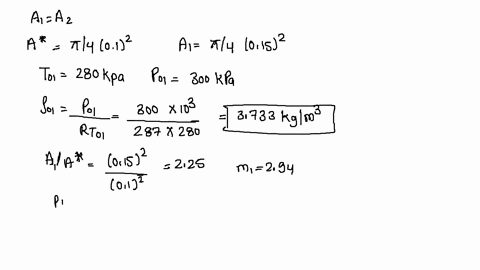 A₁ = A₂
A* = π/4 (0.1)² A₁ = π/4 (0.15)²
T₀₁ = 280 kpa P₀₁ = 300 kPa
ρ₀₁ = P₀₁/RT₀₁ = 300 × 10³/287 × 280 = 3.733 kg/m³
A₁/A* = (0.15)²/(0.1)² = 2.25 m₁ = 2.94
P₁